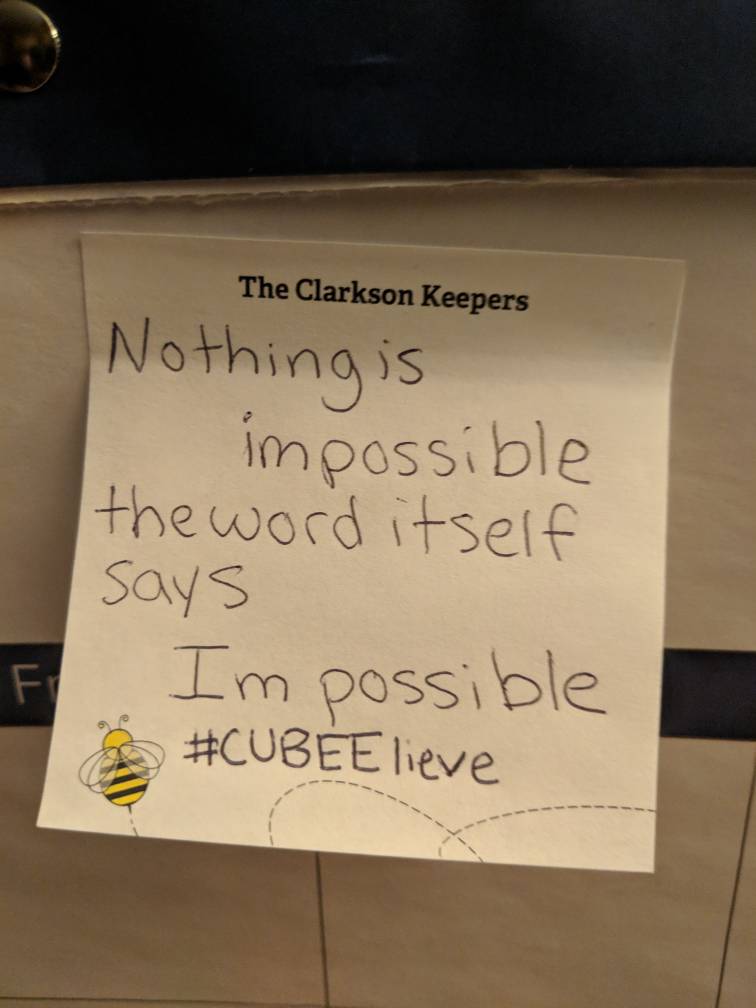 The Clarkson Keepers
Nothing is
impossible
the word itself
says
Im possible
#CUBEElieve
Fr